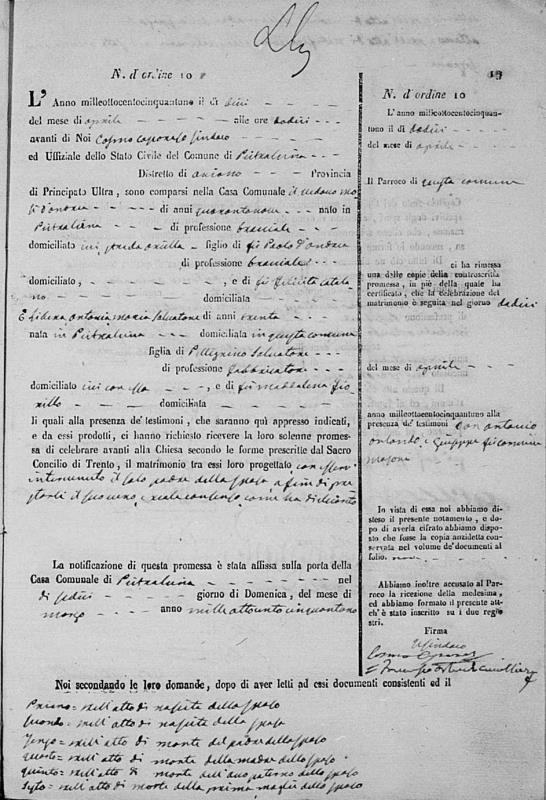 N. d'ordine 10
L' Anno millottocentocinquantuno il dì dieci
del mese di aprile alle ore dodici
avanti di Noi Cosmo Caporaso Sindaco
ed Uffiziale dello Stato Civile del Comune di Pietralcina
Distretto di Ariano Provincia
di Principato Ultra, sono comparsi nella Casa Comunale il vedovo
d'Andrea di anni quarantanove nato in
Pietralcina di professione bracciale
domiciliato ivi strada figlio di fu Paolo d'Andrea
di professione bracciale
domiciliato, , e di fu Felicita Catala
no domiciliata
E Antonia Maria Salvatore di anni trenta
nata in Pietralcina domiciliata in questa comune
figlia di Pellegrino Salvatore
di professione fabbricatore
domiciliato ivi con essa , e di fu Maddalena Fio
rillo domiciliata
li quali alla presenza de' testimoni, che saranno quì appresso indicati,
e da essi prodotti, ci hanno richiesto ricevere la loro solenne promes-
sa di celebrare avanti alla Chiesa secondo le forme prescritte dal Sacro
Concilio di Trento, il matrimonio tra essi loro progettato con esservi
intervenuto il solo padre della sposa a fine di pre
starli il suo consenso come ha dichiarato
La notificazione di questa promessa è stata affissa sulla porta della
Casa Comunale di Pietralcina nel
dì sedici giorno di Domenica, del mese di
marzo anno mille ottocento cinquantuno
Noi secondando le loro domande, dopo di aver letti ad essi documenti consistenti ed il
Primo = nell'atto di nascita dello sposo
Secondo = nell'atto di nascita della sposa
Terzo = nell'atto di morte del padre dello sposo
Quarto = nell'atto di morte della madre dello sposo
Quinto = nell'atto di morte dell'avo paterno dello sposo
Sesto = nell'atto di morte della prima moglie dello sposo
19
N. d'ordine 10
L'anno millottocentocinquan-
tuno il dì dodici
del mese di aprile
Il Parroco di questa comune
ci ha rimessa
una delle copie della controscritta
promessa, in piè della quale ha
certificato, che la celebrazione del
matrimonio è seguita nel giorno dodici
del mese di aprile
anno millottocentocinquantuno alla
presenza de' testimoni Don Antonio
Orlando e Giuseppe
Masone
In vista di essa noi abbiamo di-
steso il presente notamento, e do-
po di averla cifrato abbiamo disposto
che fosse la copia anzidetta con-
servata nel volume de' documenti al
folio.
Abbiamo inoltre accusato al Par-
roco la ricezione della medesima,
ed abbiamo formato il presente att-
ch'è stato inscritto su i due regi-
stri.
Firma
Il Sindaco